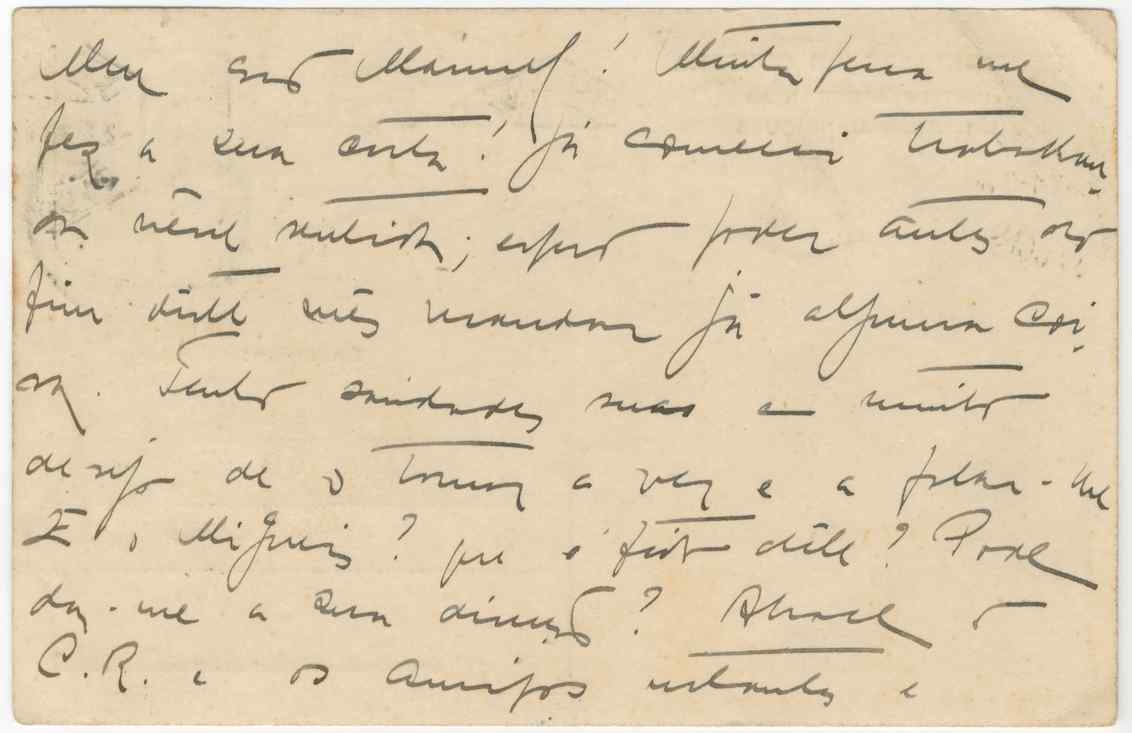 Meu caro Manuel! Muita pena me
fez a sua carta! Já comecei trabalhan-
do nesse sentido; espero poder antes do
fim deste mês mandar já alguma coi-
sa. Tenho saudades suas e muito
desejo de o tornar a ver e a falar-lhe
E o Migueis? que é feito dele? Pode
dar-me a sua direcção? Abrace o
C.R. e os amigos restantes e